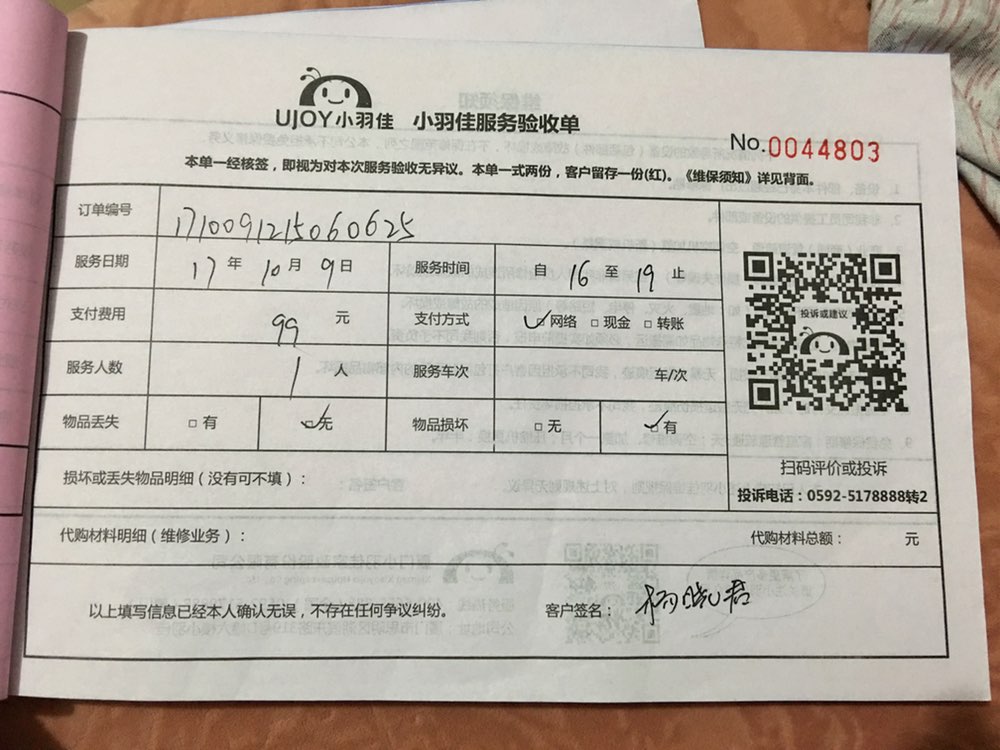 UJOY小羽佳 小羽佳服务验收单
No.0044803
本单一经核签，即视为对本次服务验收无异议。本单一式两份，客户留存一份(红)。《维保须知》详见背面。
订单编号 171009121506062​5
服务日期 17 年 10 月 9 日 服务时间 自 16 至 19 止
支付费用 99 元 支付方式 ☑网络 □现金 □转账
服务人数 1 人 服务车次 车/次
物品丢失 □有 ☑无 物品损坏 □无 ☑有
投诉或建议
扫码评价或投诉
投诉电话：0592-5178888转2
损坏或丢失物品明细（没有可不填）：
代购材料明细（维修业务）： 代购材料总额： 元
以上填写信息已经本人确认无误，不存在任何争议纠纷。 客户签名：杨晓君